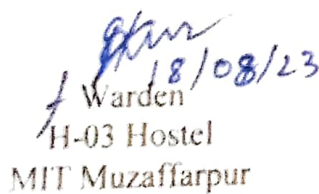 18/08/23
Warden
H-03 Hostel
MIT Muzaffarpur